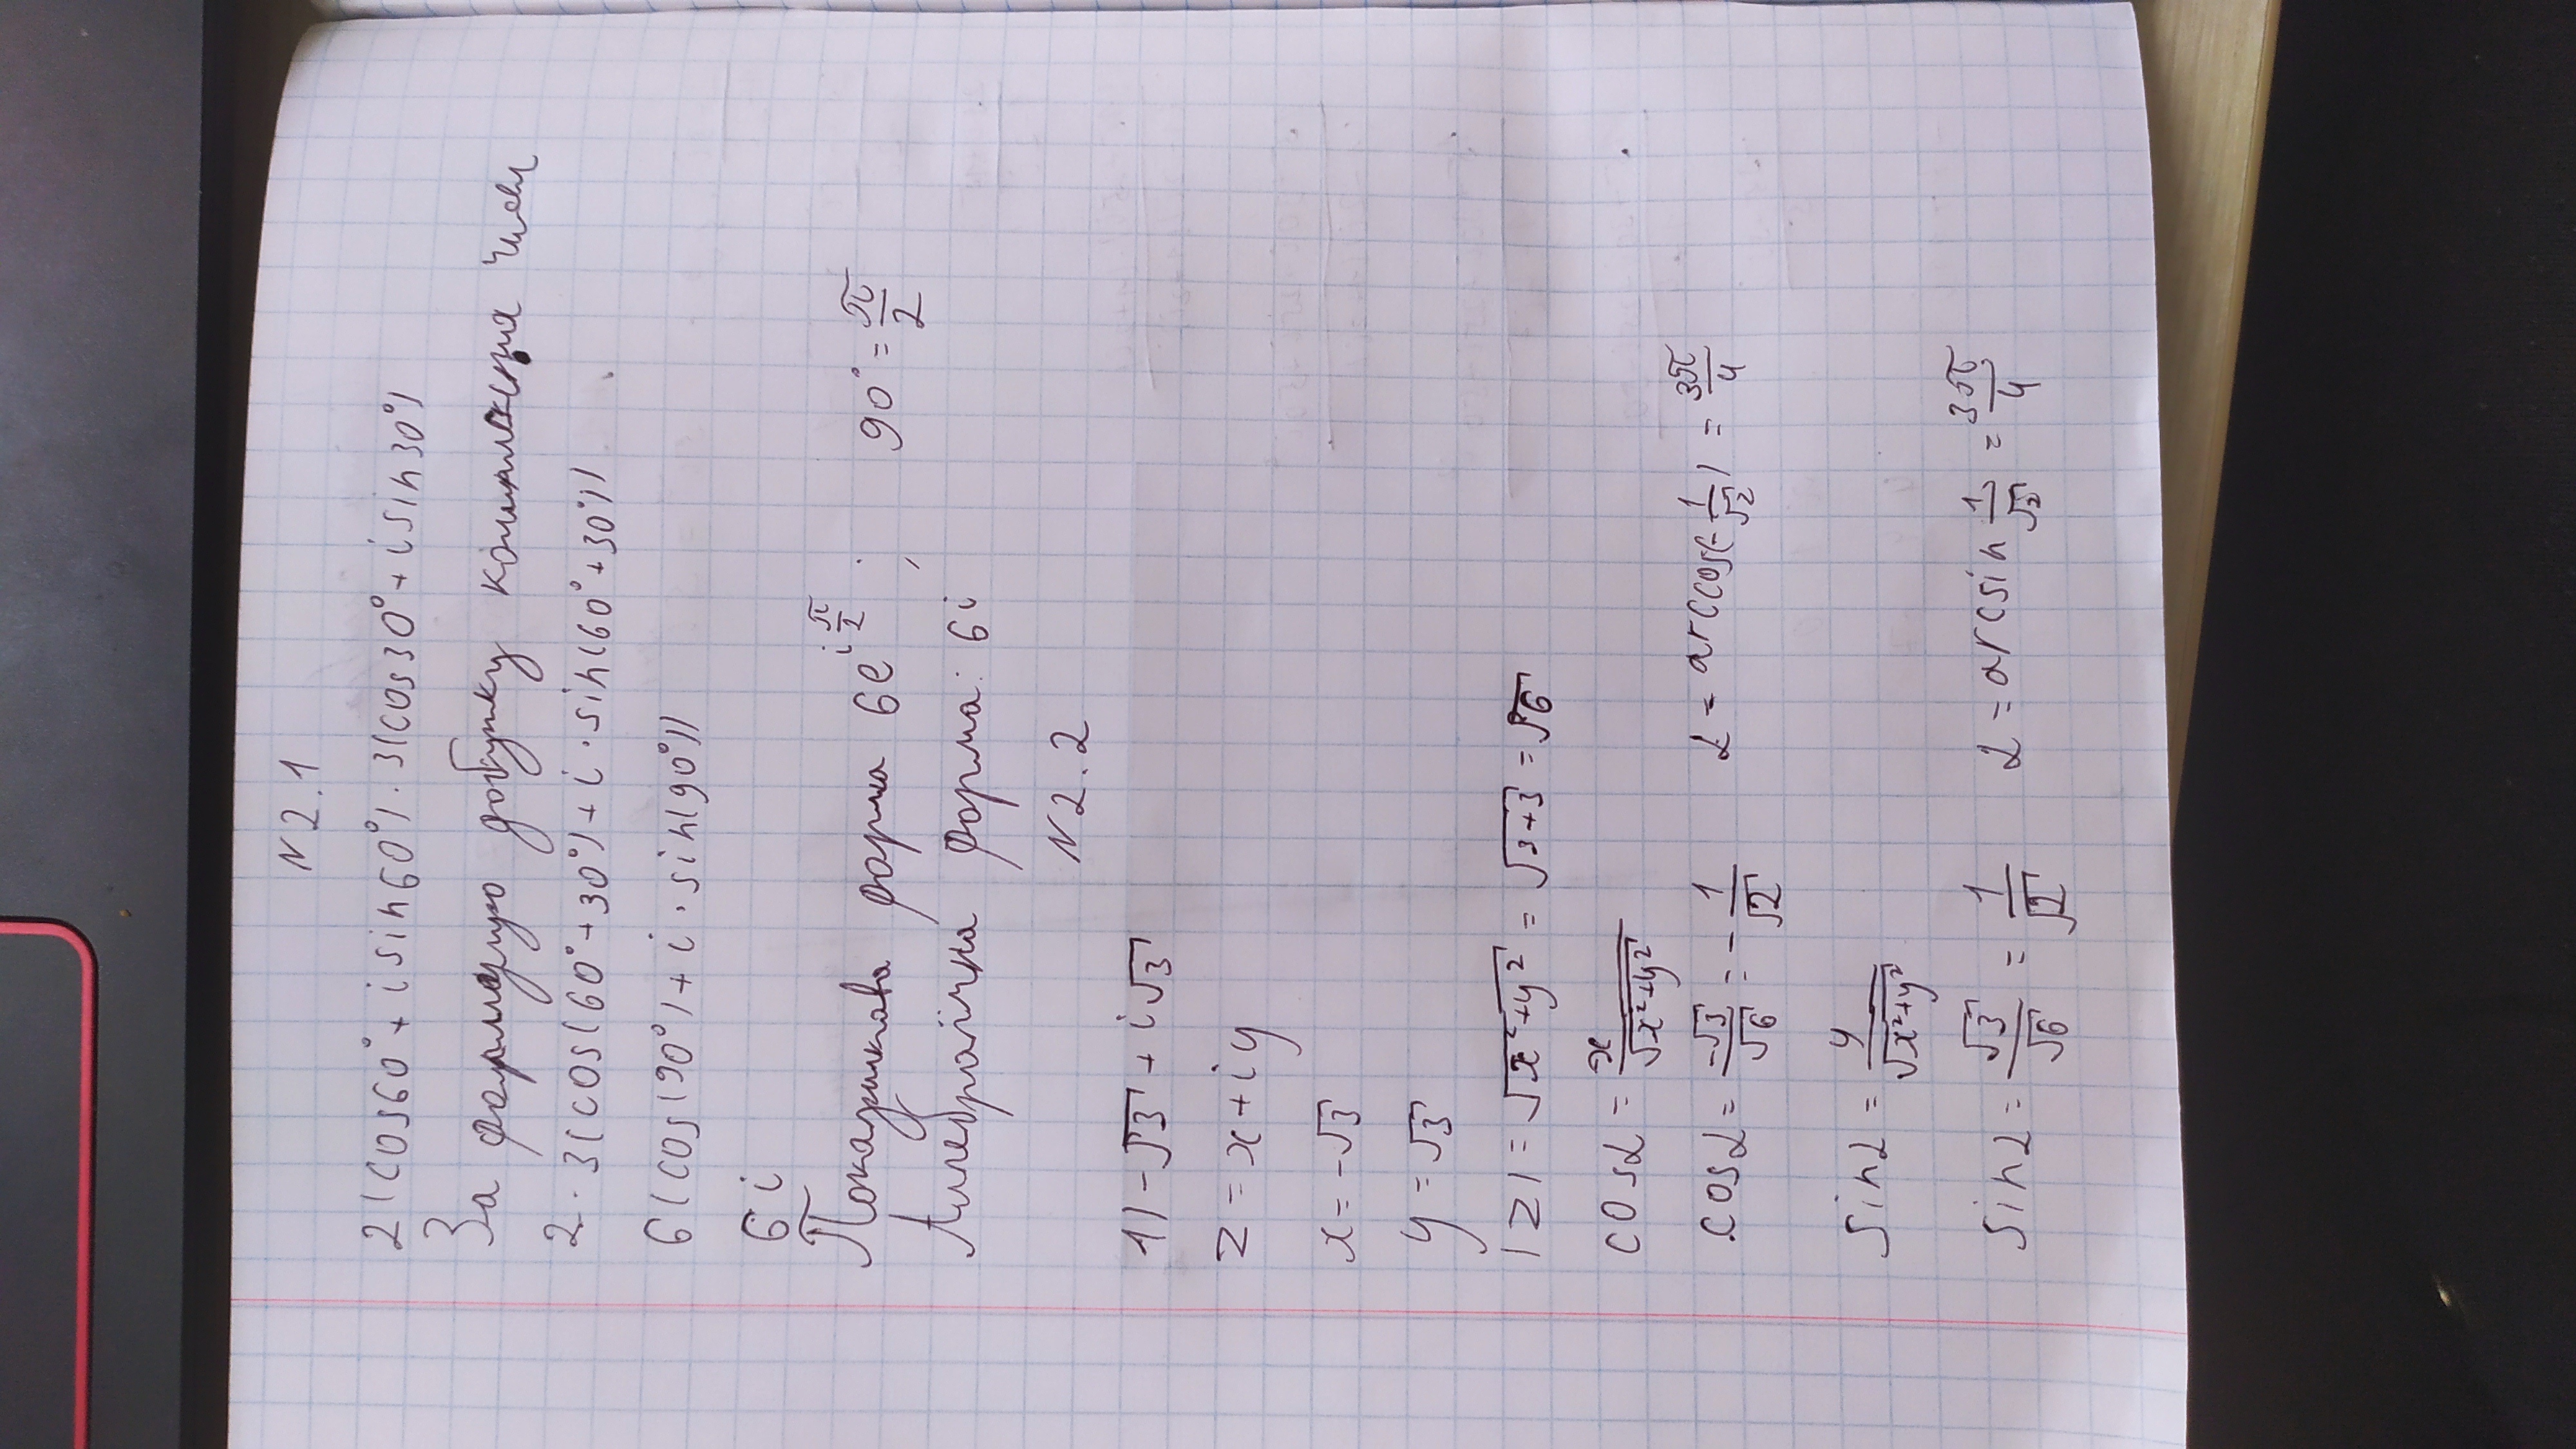 N 2.1
2(cos60° + i sin60°) · 3(cos30° + i sin30°)
За формулою добутку комплексних чисел
2 · 3(cos(60° + 30°) + i · sin(60° + 30°))
6(cos(90°) + i · sin(90°))
6i
Показникова форма 6e^{i π/2} ; 90° = π/2
Алгебраїчна форма: 6i
N 2.2
1) -√3 + i√3
z = x + iy
x = -√3
y = √3
|z| = √(x²+y²) = √(3+3) = √6
cosα = x/√(x²+y²)
cosα = -√3/√6 = -1/√2 α = arccos(-1/√2) = 3π/4
sinα = y/√(x²+y²)
sinα = √3/√6 = 1/√2 α = arcsin 1/√2 = 3π/4